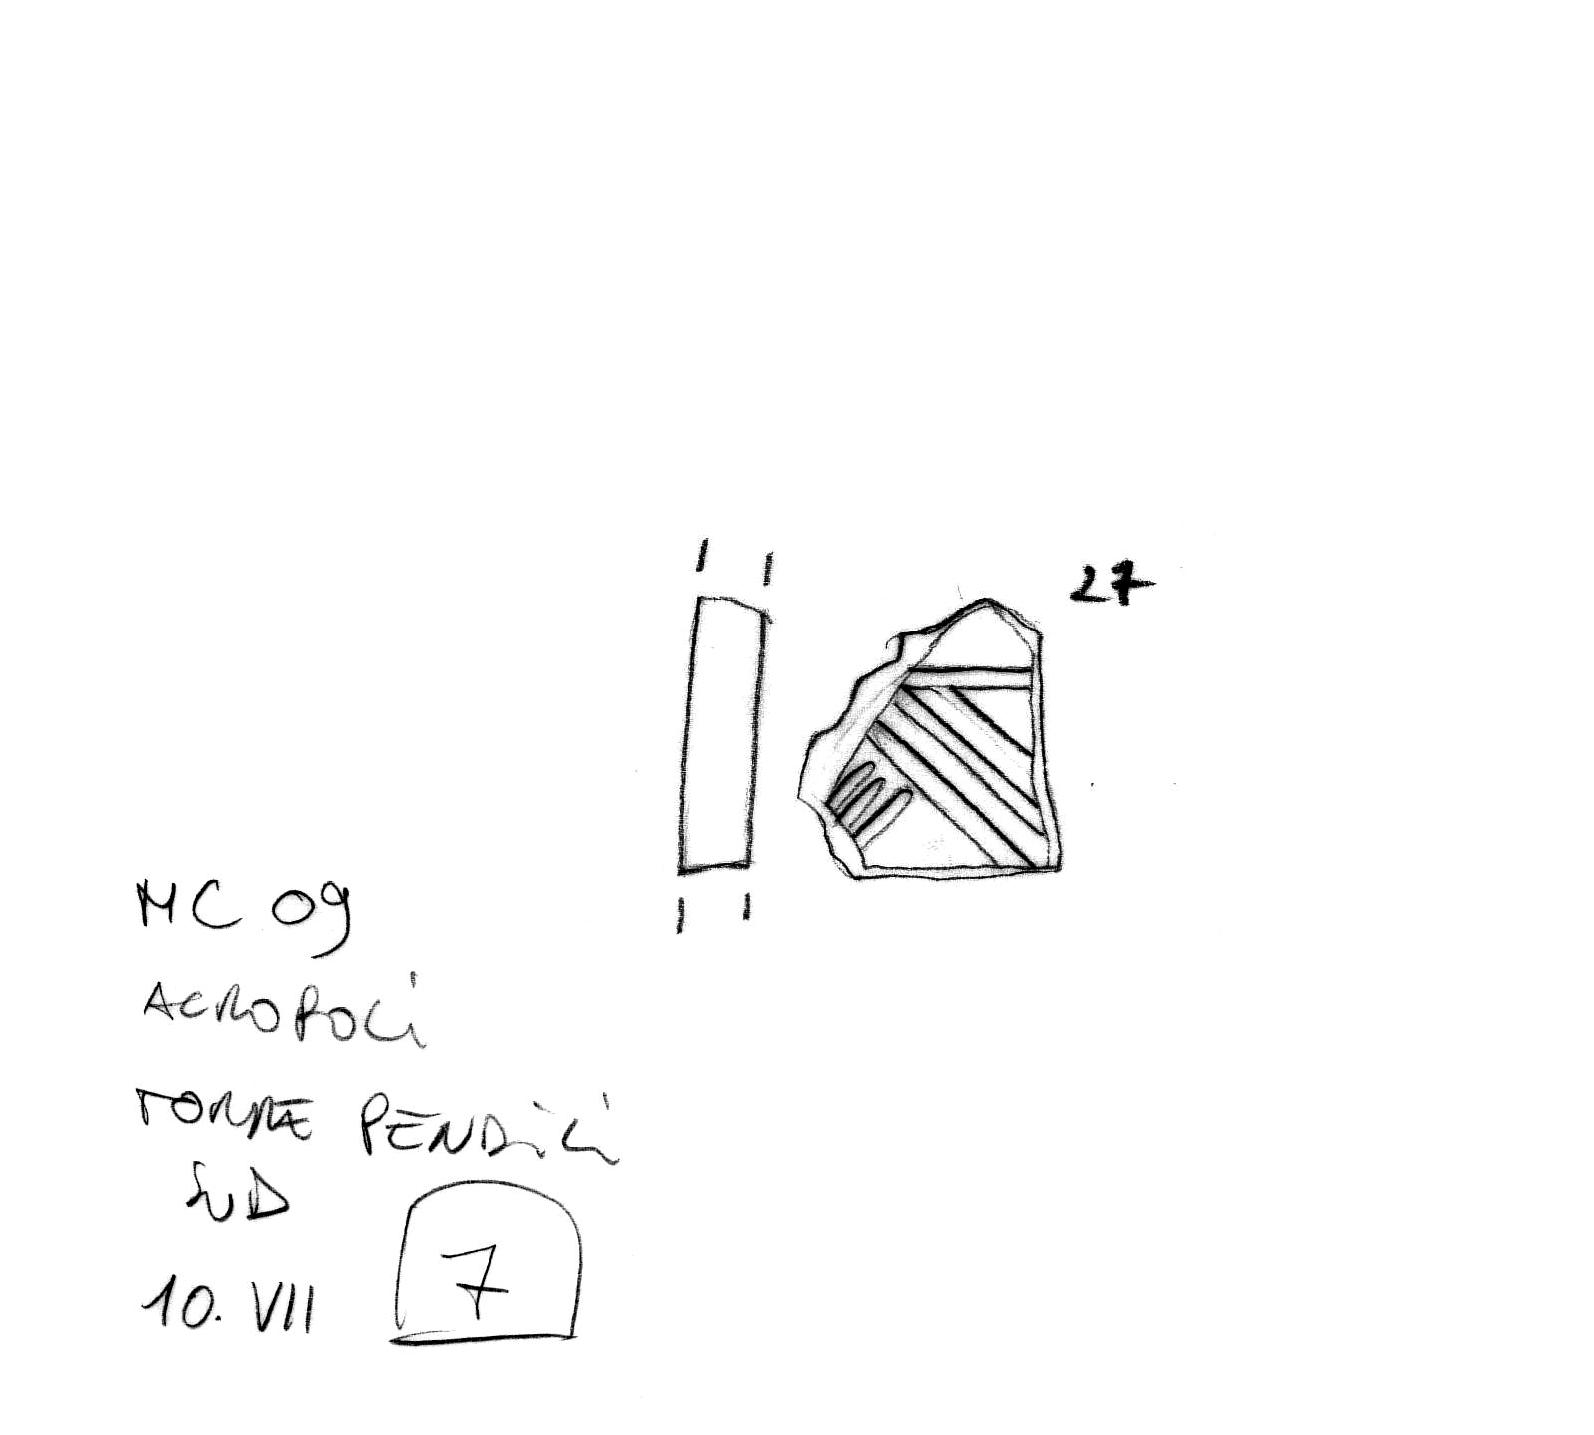 27
MC 09
ACROPOLI
TORRE PENDICI
SUD
10. VII
7